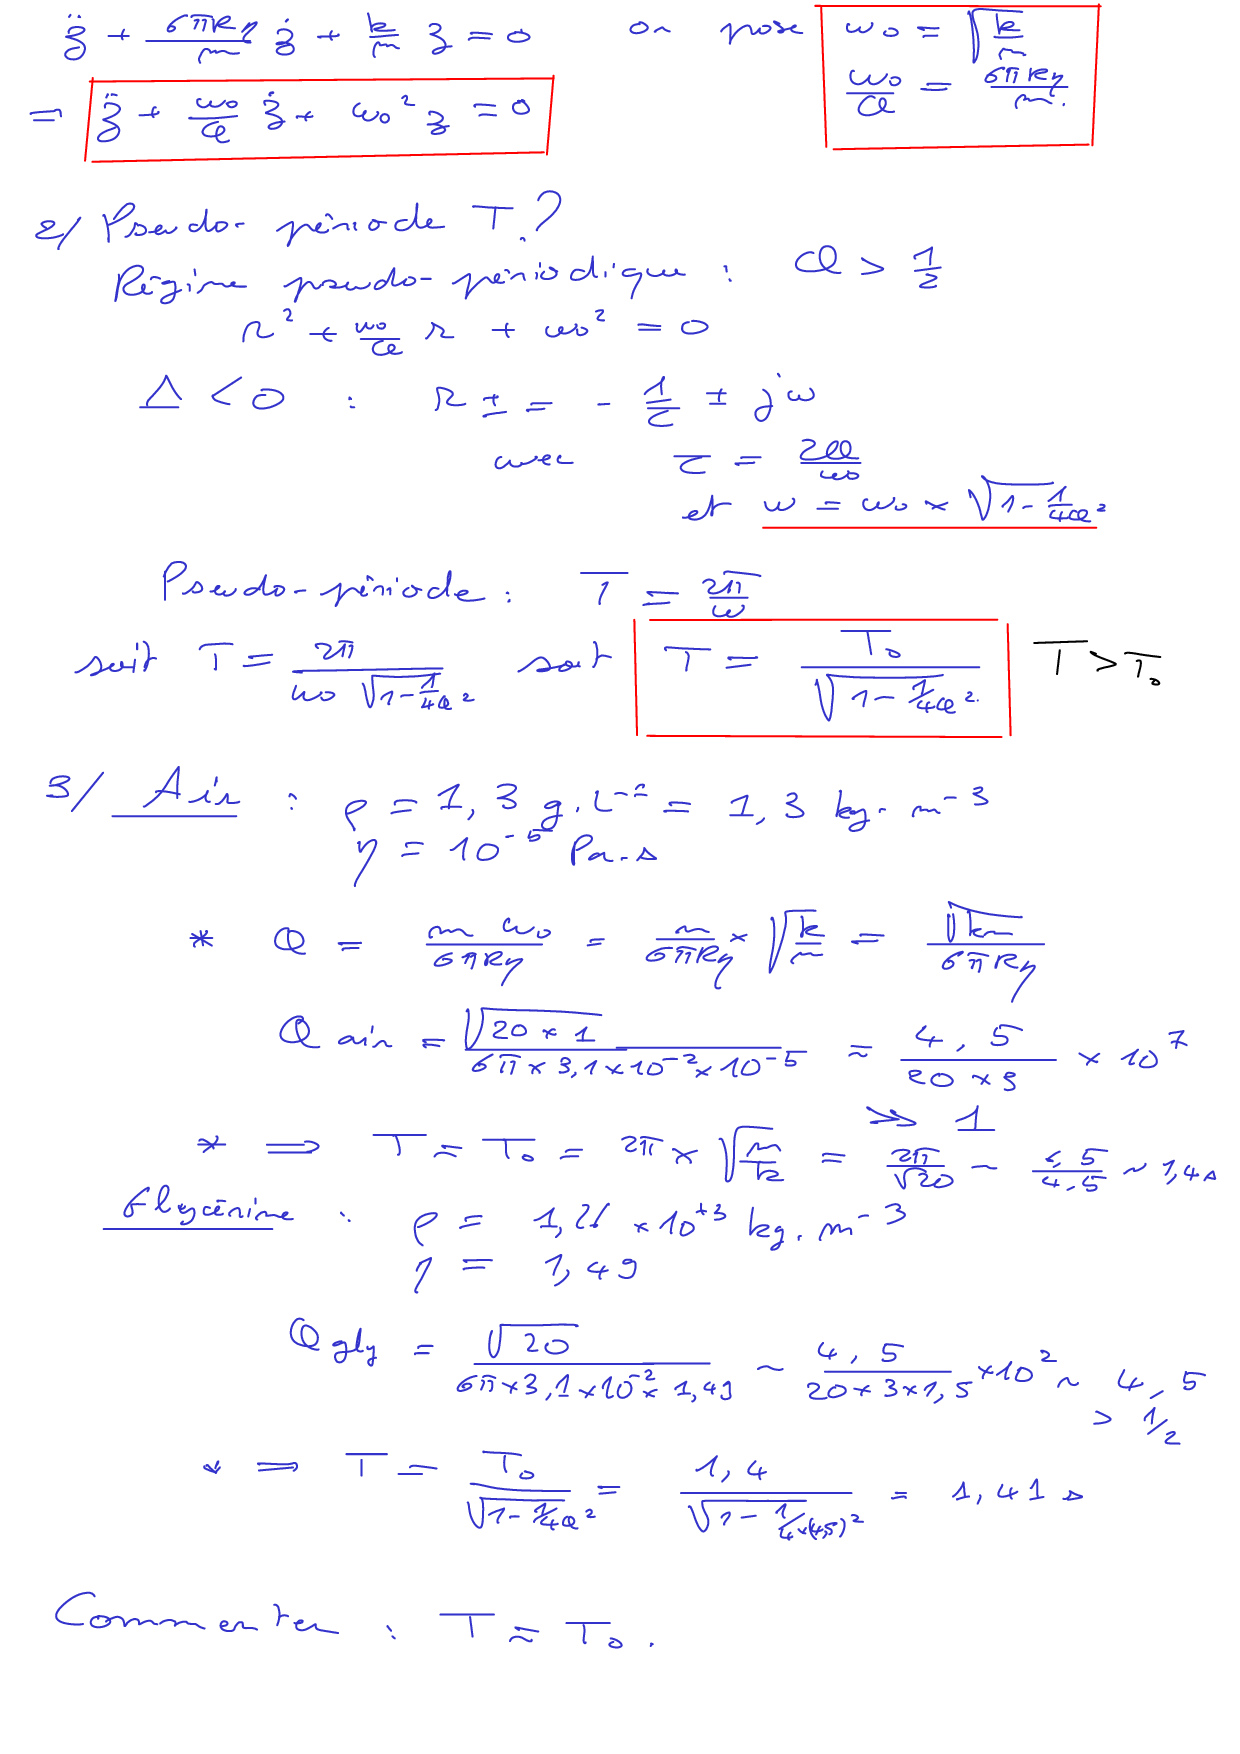 z̈ + 6πRη/m ż + k/m z = 0 on pose ω0 = √(k/m)
ω0/Q = 6πRη/m.
= z̈ + ω0/Q ż + ω0² z = 0
2/ Pseudo-période T.?
Régime pseudo-périodique : Q > 1/2
r² + ω0/Q r + ω0² = 0
Δ < 0 : r± = - 1/τ ± jω
avec τ = 2Q/ω0
et ω = ω0 × √(1 - 1/4Q²)
Pseudo-période : T = 2π/ω
soit T = 2π/(ω0 √(1 - 1/4Q²)) soit T = T0/√(1 - 1/4Q²). T > T0
3/ Air : ρ = 1,3 g.L⁻¹ = 1,3 kg.m⁻³
η = 10⁻⁵ Pa.s
* Q = mω0/6πRη = m/6πRη × √(k/m) = √(km)/6πRη
Q air = √(20 × 1)/(6π × 3,1 × 10⁻² × 10⁻⁵) ≈ 4,5/(20 × 3) × 10⁷
≫ 1
* ⟹ T ≈ T0 = 2π × √(m/k) = 2π/√20 ~ 6,5/4,5 ~ 1,4 s
Glycérine : ρ = 1,26 × 10⁺³ kg.m⁻³
η = 1,49
Q gly = √20/(6π × 3,1 × 10⁻² × 1,49) ~ 4,5/(20 × 3 × 1,5) × 10² ~ 4,5
> 1/2
* ⟹ T = T0/√(1 - 1/4Q²) = 1,4/√(1 - 1/4×(4,5)²) = 1,41 s
Commenter : T ≈ T0.